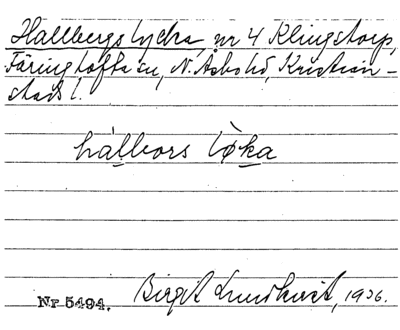 Hallbergs lycka, nr 4 Klingstorp,
Färingtofta sn, N. Åsbo hd, Kristian-
stads l.
hàlbors lø̀ka
Nr 5494. Birgit Lundkvist, 1936.